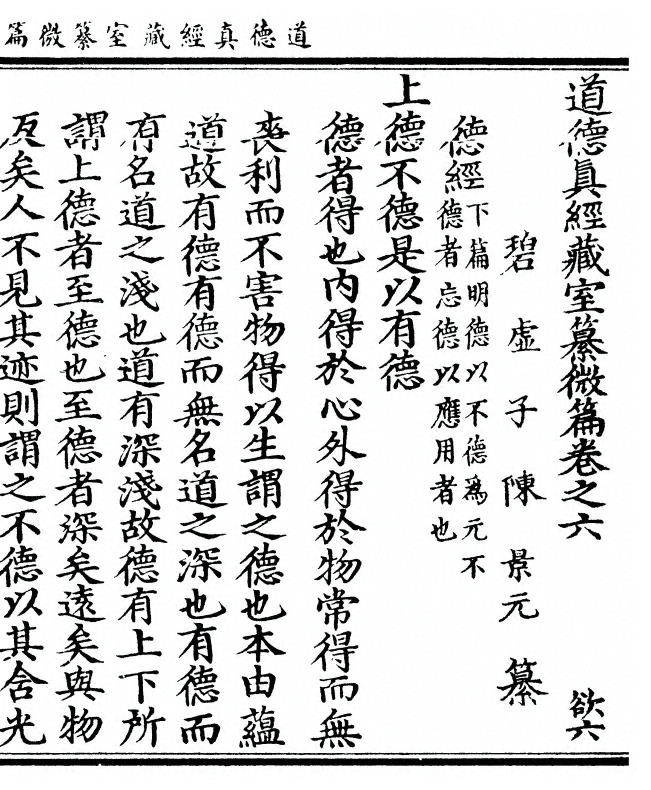 道德真經藏室纂微篇
道德真經藏室纂微篇卷之六 欲六
碧虛子陳景元纂
德經下篇明德以不德爲元不
德者忘德以應用者也
上德不德是以有德
德者得也內得於心外得於物常得而無
喪利而不害物得以生謂之德也本由蘊
道故有德有德而無名道之深也有德而
有名道之淺也道有深淺故德有上下所
謂上德者至德也至德者深矣遠矣與物
反矣人不見其迹則謂之不德以其含光